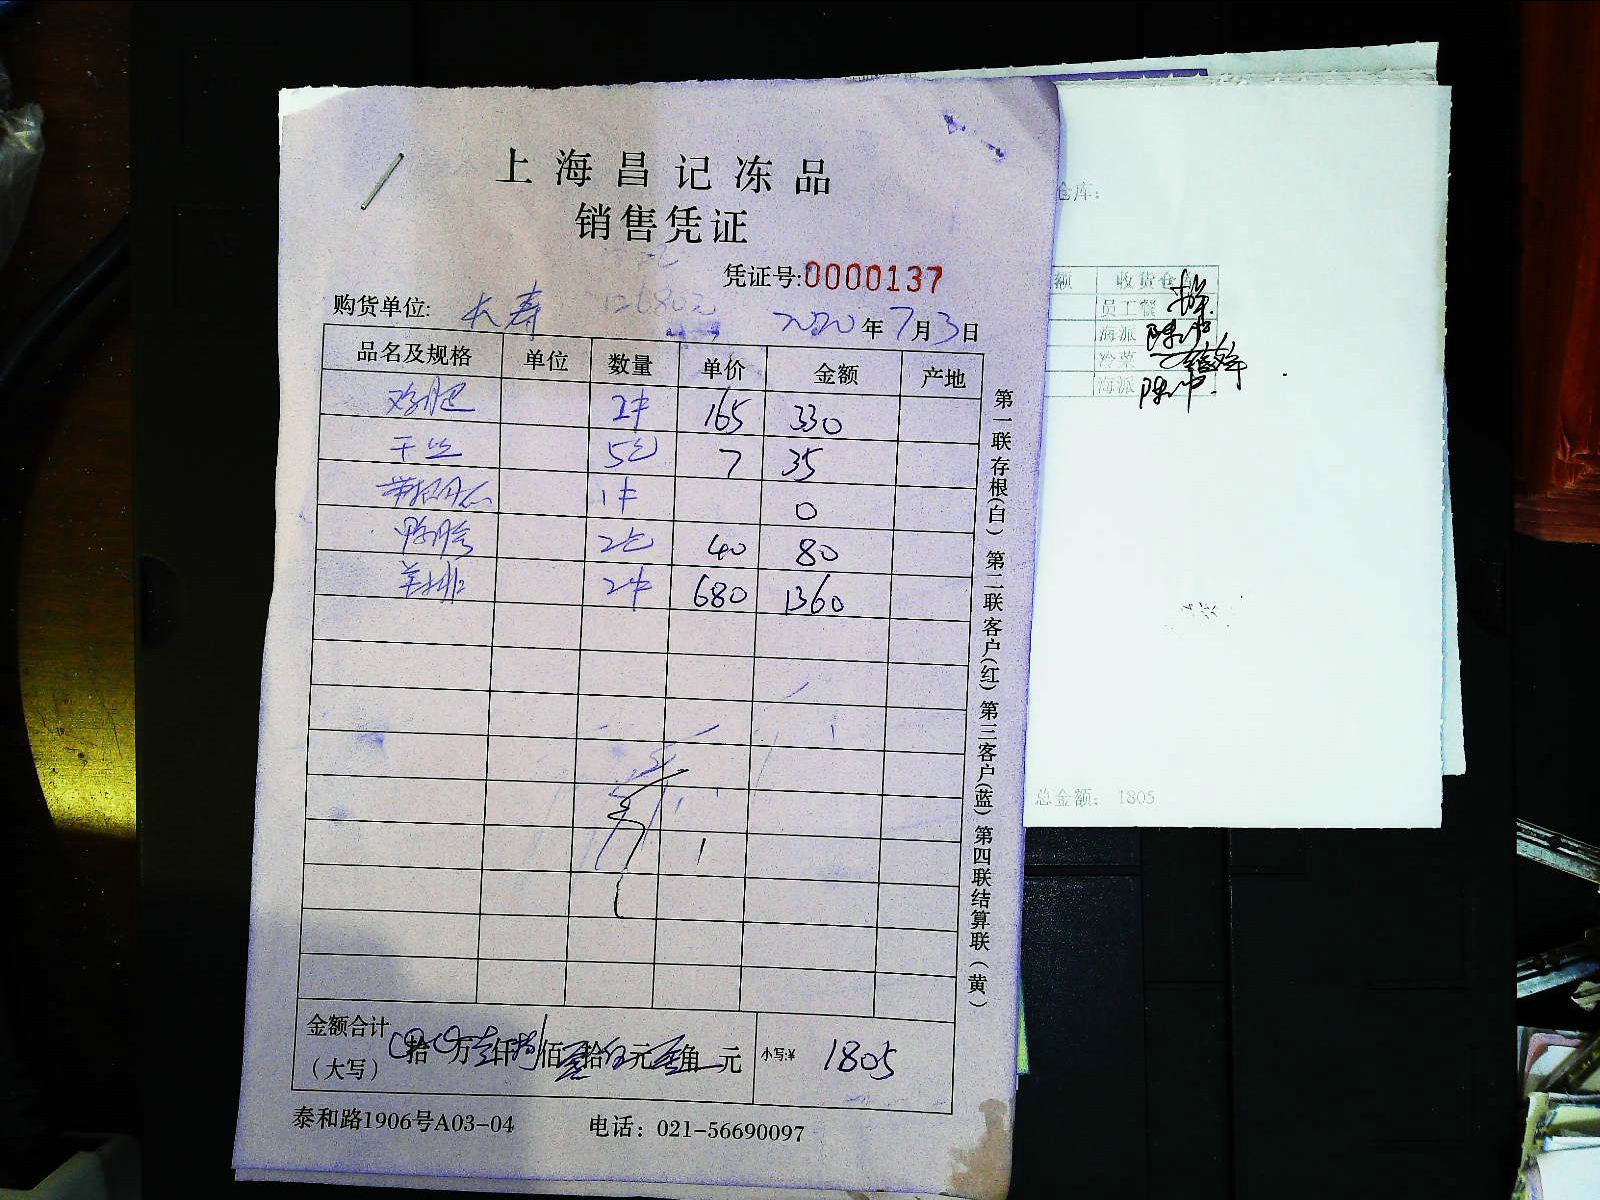 上海昌记冻品
销售凭证
凭证号:0000137
购货单位: 长寿 2020年7月3日
品名及规格 单位 数量 单价 金额 产地
2件 165 330
干丝 5包 7 35
1件 0
2包 40 80
羊排 2件 680 1360
金额合计(大写) 拾 万壹仟捌佰零拾伍元零角 元 小写:¥ 1805
泰和路1906号A03-04 电话：021-56690097
第一联存根(白) 第二联客户(红) 第三客户(蓝) 第四联结算联(黄)
仓库:
额 收货仓
员工餐
海派
冷菜
海派
总金额: 1805